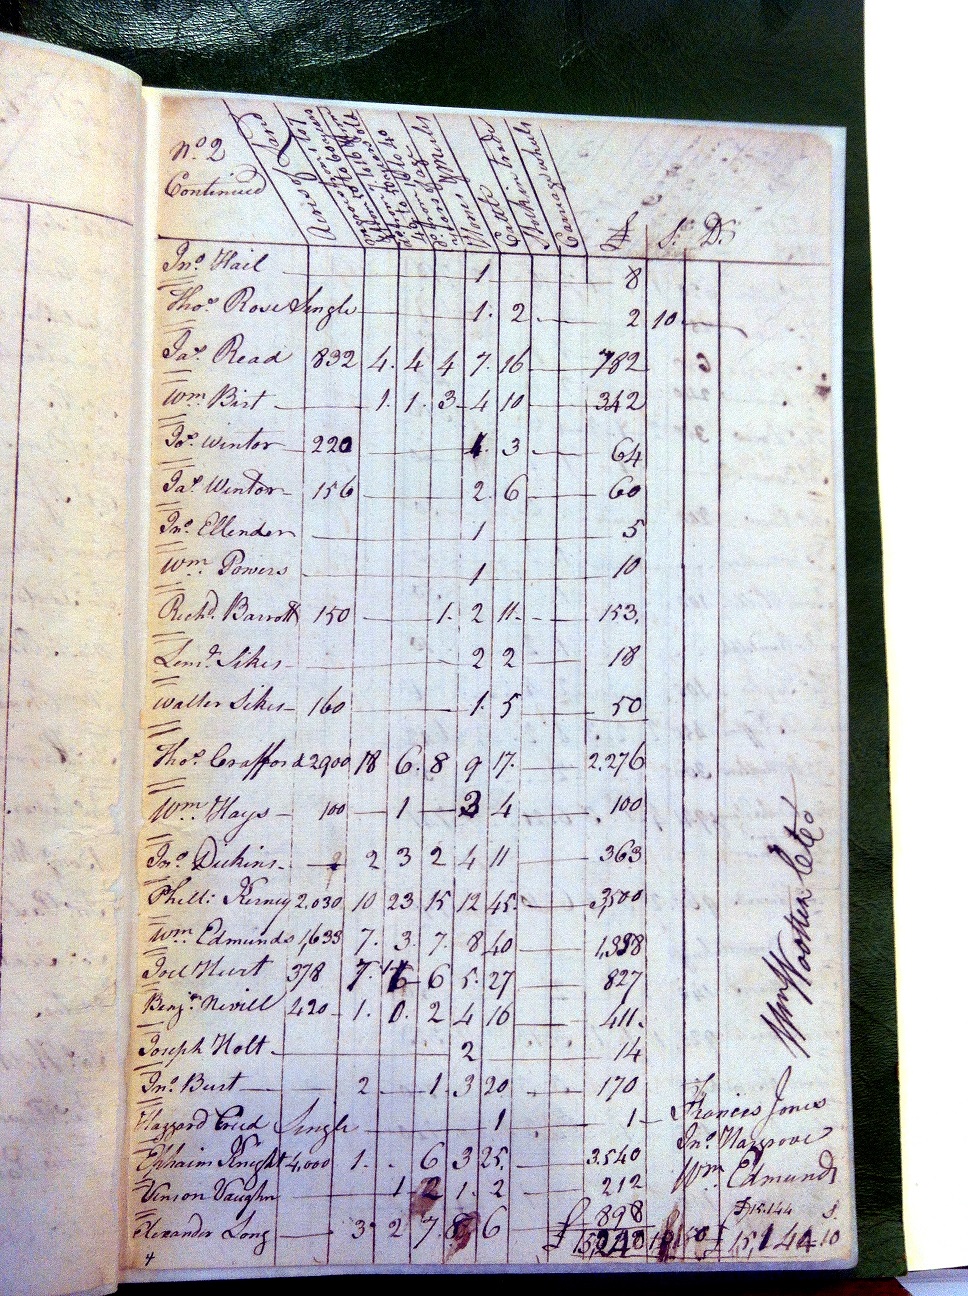 No. 2
Continued
Acres of Land
Horses & Mules
Cattle
Stock in trade
Carriage wheels
£ S. D.
Jno. Hail 1 8
Thos. Rose Single 1. 2 2 10
Jas. Read 832 4. 4 4 7. 16 782
Wm. Birt 1. 1. 3 4 10 342
Jos. Winter 220 1. 3 64
Jas. Winter 156 2. 6 60
Jno. Ellender 1 5
Wm. Powers 1 10
Richd. Barrott 150 1. 2 11. 153.
Leml. Sikes 2 2 18
Walter Sikes 160 1. 5 50
Thos. Crafford 2900 18 6. 8 9 17. 2.276
Wm. Hays 100 1 3 4 100
Jno. Dickins 2 3 2 4 11 363
Phill: Kerney 2.030 10 23 15 12 45. 3,500
Wm. Edmunds 1,633 7. 3. 7. 8 40 1,358
Joel Hurt 378 7. 6 5. 27 827
Benjn. Nevill 420 1. 0. 2 4 16 411.
Joseph Holt 2 14
Jno. Burt 2 1. 3 20 170
Hazzard Creed Single 1 1
Ephraim Knight 4,000 1. 6 3 25. 3.540
Vinson Vaughn 1 2 1. 2 212
Alexander Long 3 2 7. 8 6 898
Wm. Wootten
Frances Jones
Jno. Hargrove
Wm. Edmunds
£15.144 S.
£15,144 10
4